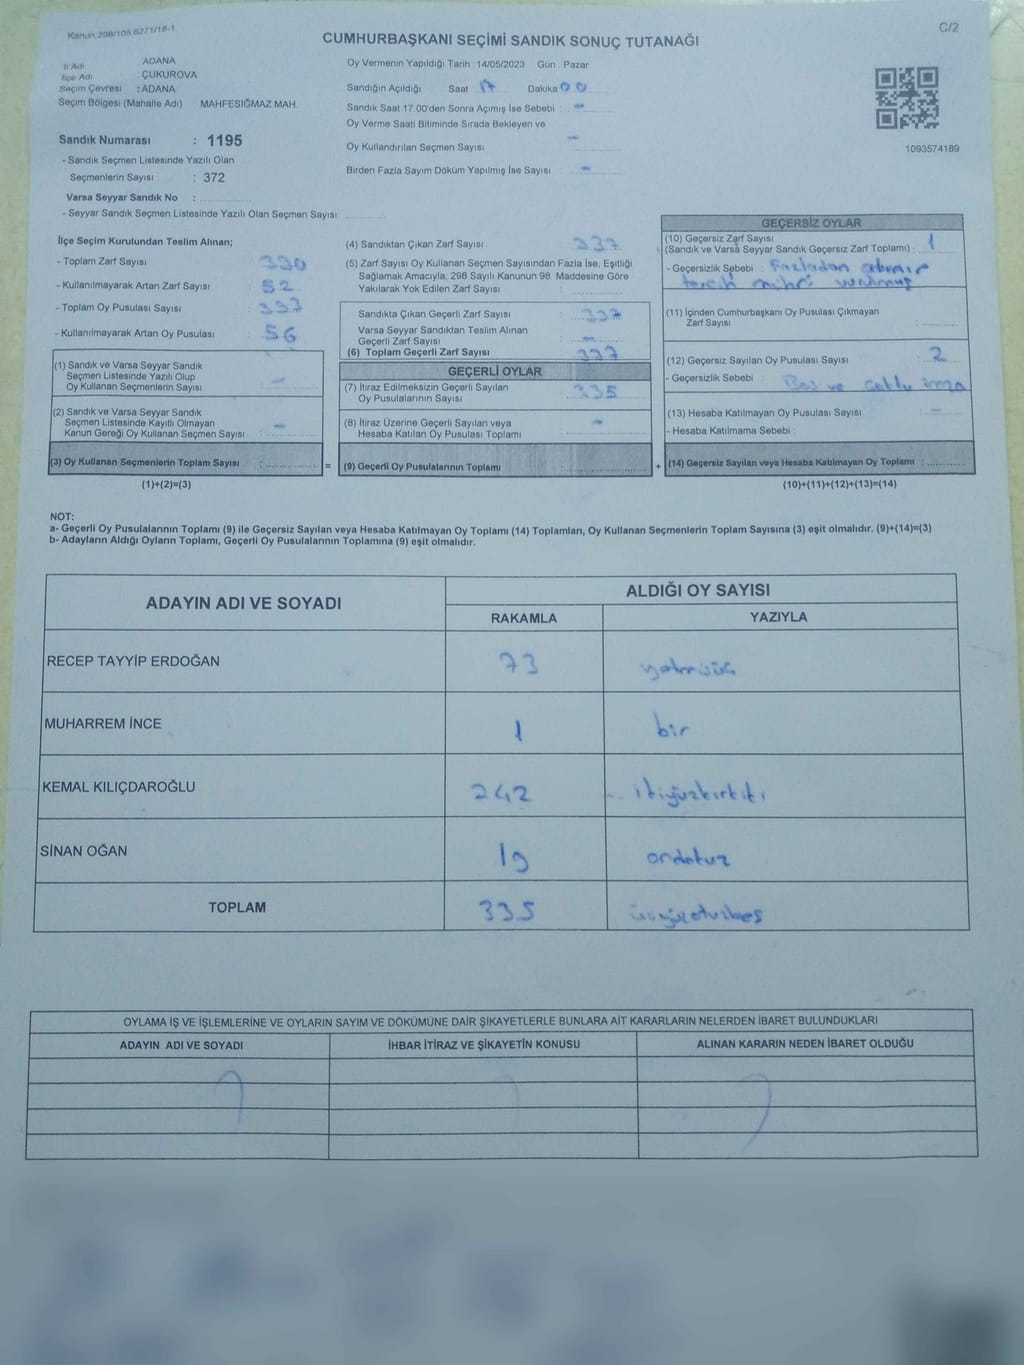 Kanun 298/105.6271/18-1
C/2
CUMHURBAŞKANI SEÇİMİ SANDIK SONUÇ TUTANAĞI
İl Adı ADANA
İlçe Adı ÇUKUROVA
Seçim Çevresi : ADANA
Seçim Bölgesi (Mahalle Adı) MAHFESIĞMAZ MAH.
Sandık Numarası : 1195
- Sandık Seçmen Listesinde Yazılı Olan
Seçmenlerin Sayısı : 372
Varsa Seyyar Sandık No :
- Seyyar Sandık Seçmen Listesinde Yazılı Olan Seçmen Sayısı:
Oy Vermenin Yapıldığı Tarih : 14/05/2023 Gün Pazar
Sandığın Açıldığı Saat 17 Dakika 00
Sandık Saat 17.00'den Sonra Açımış İse Sebebi : -
Oy Verme Saati Bitiminde Sırada Bekleyen ve
Oy Kullandırılan Seçmen Sayısı -
Birden Fazla Sayım Döküm Yapılmış İse Sayısı : -
1093574189
İlçe Seçim Kurulundan Teslim Alınan;
- Toplam Zarf Sayısı
- Kullanılmayarak Artan Zarf Sayısı : 52
- Toplam Oy Pusulası Sayısı :
- Kullanılmayarak Artan Oy Pusulası : 56
(1) Sandık ve Varsa Seyyar Sandık
Seçmen Listesinde Yazılı Olup
Oy Kullanan Seçmenlerin Sayısı : -
(2) Sandık ve Varsa Seyyar Sandık
Seçmen Listesinde Kayıtlı Olmayan
Kanun Gereği Oy Kullanan Seçmen Sayısı : -
(3) Oy Kullanan Seçmenlerin Toplam Sayısı :
(1)+(2)=(3)
=
(4) Sandıktan Çıkan Zarf Sayısı 337
(5) Zarf Sayısı Oy Kullanan Seçmen Sayısından Fazla İse, Eşitliği
Sağlamak Amacıyla, 298 Sayılı Kanunun 98. Maddesine Göre
Yakılarak Yok Edilen Zarf Sayısı :
Sandıkta Çıkan Geçerli Zarf Sayısı : 337
Varsa Seyyar Sandıktan Teslim Alınan
Geçerli Zarf Sayısı : -
(6) Toplam Geçerli Zarf Sayısı 337
GEÇERLİ OYLAR
(7) İtiraz Edilmeksizin Geçerli Sayılan
Oy Pusulalarının Sayısı : 335
(8) İtiraz Üzerine Geçerli Sayılan veya
Hesaba Katılan Oy Pusulası Toplamı : -
(9) Geçerli Oy Pusulalarının Toplamı
+
GEÇERSİZ OYLAR
(10) Geçersiz Zarf Sayısı
(Sandık ve Varsa Seyyar Sandık Geçersiz Zarf Toplamı) : 1
- Geçersizlik Sebebi : Fazladan
tercih mührü
(11) İçinden Cumhurbaşkanı Oy Pusulası Çıkmayan
Zarf Sayısı :
(12) Geçersiz Sayılan Oy Pusulası Sayısı : 2
- Geçersizlik Sebebi : Boş ve
(13) Hesaba Katılmayan Oy Pusulası Sayısı : -
- Hesaba Katılmama Sebebi :
(14) Geçersiz Sayılan veya Hesaba Katılmayan Oy Toplamı :
(10)+(11)+(12)+(13)=(14)
NOT:
a- Geçerli Oy Pusulalarının Toplamı (9) ile Geçersiz Sayılan veya Hesaba Katılmayan Oy Toplamı (14) Toplamları, Oy Kullanan Seçmenlerin Toplam Sayısına (3) eşit olmalıdır. (9)+(14)=(3)
b- Adayların Aldığı Oyların Toplamı, Geçerli Oy Pusulalarının Toplamına (9) eşit olmalıdır.
ADAYIN ADI VE SOYADI
ALDIĞI OY SAYISI
RAKAMLA YAZIYLA
RECEP TAYYİP ERDOĞAN 73 yetmişüç
MUHARREM İNCE 1 bir
KEMAL KILIÇDAROĞLU 242 ikiyüzkırkiki
SİNAN OĞAN 19 ondokuz
TOPLAM 335 üçyüzotuzbeş
OYLAMA İŞ VE İŞLEMLERİNE VE OYLARIN SAYIM VE DÖKÜMÜNE DAİR ŞİKAYETLERLE BUNLARA AİT KARARLARIN NELERDEN İBARET BULUNDUKLARI
ADAYIN ADI VE SOYADI İHBAR İTİRAZ VE ŞİKAYETİN KONUSU ALINAN KARARIN NEDEN İBARET OLDUĞU